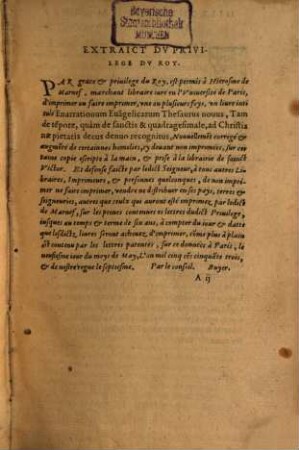 Bayerische
Staatsbibliothek
MÜNCHEN
EXTRAICT DV PRIVI-
LEGE DV ROY.
PAR grace & priuilege du Roy, est permis à Hierosme de
Marnef, marchant libraire iuré en l'Vniuersité de Paris,
d'imprimer ou faire imprimer, vne ou plusieurs foys, vn liure inti
tulé Enarrationum Euāgelicarum Thesaurus nouus, Tam
de tēpore, quàm de sanctis & quadragesimale, ad Christia
næ pietatis decus denuo recognitus, Nouuellemēt corrigé &
augmēté de certaines homelies, cy deuant non imprimées, sur cer
taine copie escripte à la main, & prise à la librairie de sainct
Victor. Et defense faicte par ledict Seigneur, à tous autres Li-
braires, Imprimeurs, & personnes quelconques, de non impri-
mer ne faire imprimer, vendre ou distribuer en ses pays, terres &
seigneuries, autres que ceulx qui auront esté imprimez par ledict
de Marnef, sur les peines contenues es lettres dudict Priuilege,
iusques au temps & terme de six ans, à compter du iour & datte
que lesdictz liures seront acheuez d'imprimer, cōme plus à plain
est contenu par les lettres patentes, sur ce données à Paris, le
neufiesme iour du moys de May, L'an mil cinq cēs cinquāte trois,
& de nostre regne le septiesme. Par le conseil. Buyer.
A ij